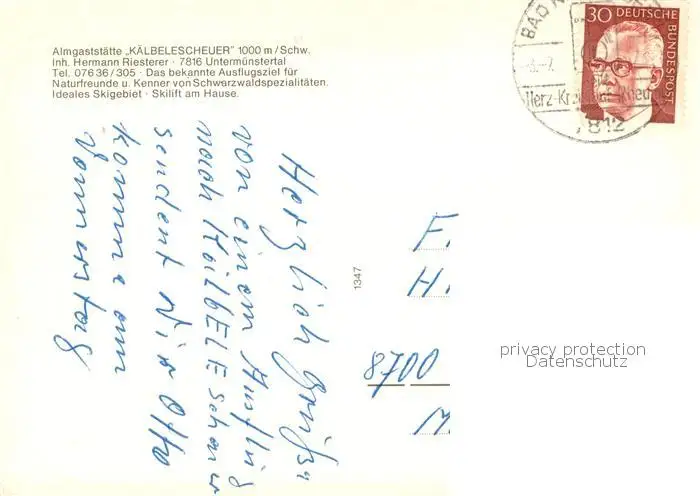 Almgaststätte „KÄLBELESCHEUER" 1000 m/Schw.
Inh. Hermann Riesterer · 7816 Untermünstertal
Tel. 07636/305 · Das bekannte Ausflugsziel für
Naturfreunde u. Kenner von Schwarzwaldspezialitäten.
Ideales Skigebiet · Skilift am Hause.
BAD K
30 DEUTSCHE
BUNDESPOST
Herz-Kreislauf-Rheuma
7812
Herzlich Grüße
von einem Ausflug
nach KälbELEscheuer
sendent Dir Otto
komme am
Donnerstag
1347
F.
H.
8700
M.
privacy protection
Datenschutz